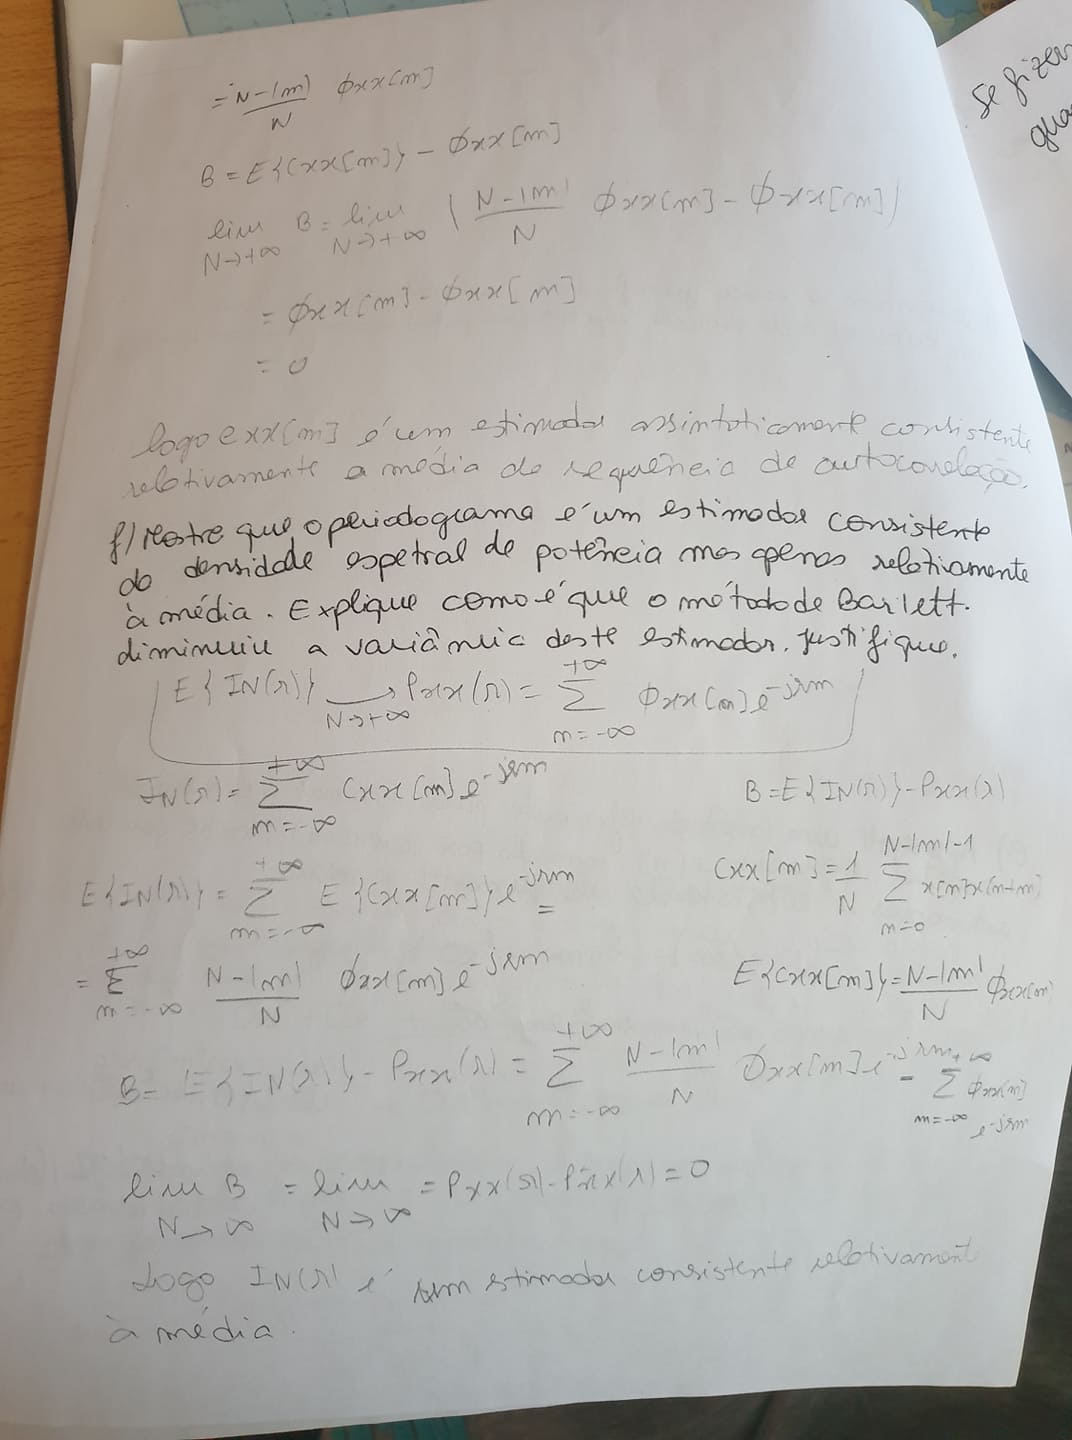 = N-|m| / N φxx[m]
B = E{Cxx[m]} - φxx[m]
lim N→+∞ B = lim N→+∞ ( N-|m| / N φxx[m] - φxx[m] )
= φxx[m] - φxx[m]
= 0
logo cxx[m] é um estimador assintoticamente consistente
relativamente a média do sequência de autocorrelação.
f) Mostre que o periodograma é um estimador consistente
do densidade espetral de potência mas apenas relativamente
à média. Explique como é que o método de Barlett.
diminuiu a variância deste estimador. Justifique.
E{IN(Ω)} → N→+∞ Pxx(Ω) = +∞ Σ m=-∞ φxx[m] e^-jΩm
IN(Ω) = +∞ Σ m=-∞ Cxx[m] e^-jΩm
B = E{IN(Ω)} - Pxx(Ω)
E{IN(Ω)} = +∞ Σ m=-∞ E{Cxx[m]} e^-jΩm =
Cxx[m] = 1/N N-|m|-1 Σ m=0 x[m]x[n+m]
= +∞ Σ m=-∞ N-|m| / N φxx[m] e^-jΩm
E{Cxx[m]} = N-|m| / N φxx[m]
B = E{IN(Ω)} - Pxx(Ω) = +∞ Σ m=-∞ N-|m| / N φxx[m] e^-jΩm - +∞ Σ m=-∞ φxx[m] e^-jΩm
lim N→∞ B = lim N→∞ = Pxx(Ω) - Pxx(Ω) = 0
Logo IN(Ω) é um estimador consistente relativament
à média.
Se fizer